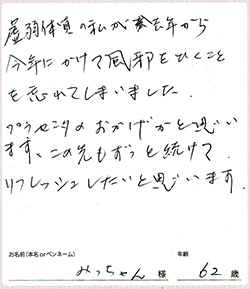 虚弱体質の私が去年から
今年にかけて風邪をひくこと
を忘れてしまいました。
プラセンタのおかげかと思い
ます、この先もずっと続けて
リフレッシュしたいと思います。
お名前(本名orペンネーム)
年齢
みっちゃん 様
62 歳